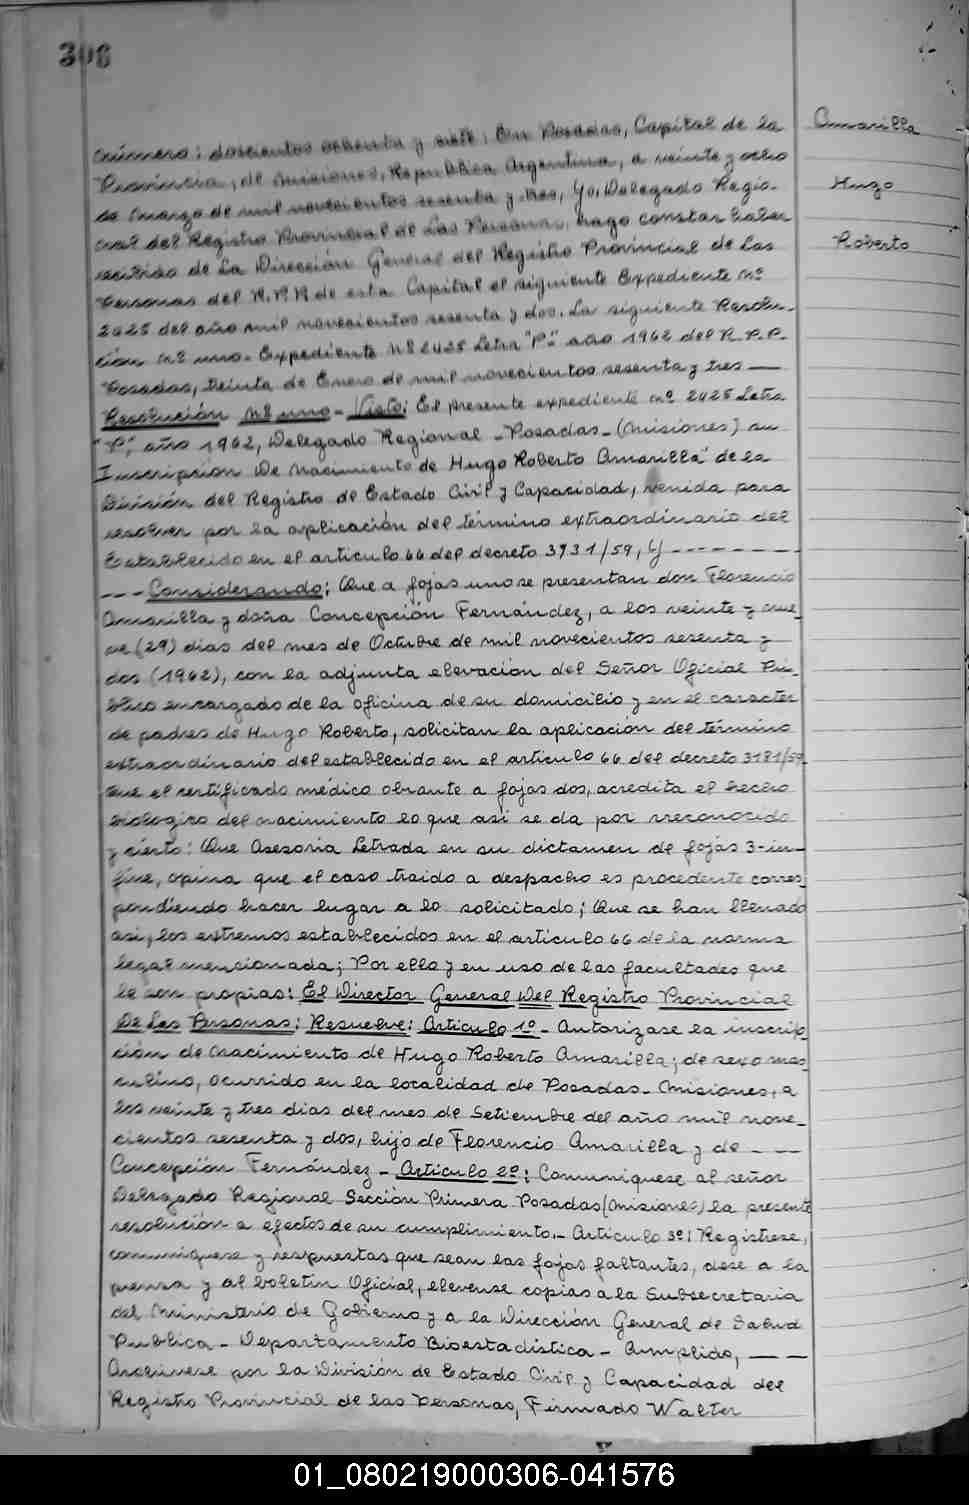 306
Amarilla
Hugo
Roberto
número: doscientos ochenta y siete: En Posadas, Capital de la
Provincia, de Misiones, Republica Argentina, a veinte y ocho
de Marzo de mil novecientos sesenta y tres, Yo, Delegado Regio-
nal del Registro Provincial de Las Personas, hago constar haber
recibido de La Dirección General del Registro Provincial de Las
Personas del R.P.P. de esta Capital el siguiente Expediente nº
2425 del año mil novecientos sesenta y dos. La siguiente Resolu-
ción nº uno- Expediente Nº 2425 Letra "P". año 1962 del R.P.P.
Posadas, treinta de Enero de mil novecientos sesenta y tres —
Resolución Nº uno - Visto: El presente expediente nº 2425 Letra
"P", año 1962, Delegado Regional - Posadas - (Misiones) su
Inscripcion De Nacimiento de Hugo Roberto Amarilla de la
División del Registro de Estado Civil y Capacidad, venida para
resolver por la aplicación del término extraordinario del
Establecido en el articulo 66 del decreto 3131/59, y - - - - - - -
- - - Considerando: Que a fojas uno se presentan don Florencio
Amarilla y doña Concepción Fernández, a los veinte y nue_
ve (29) dias del mes de Octubre de mil novecientos sesenta y
dos (1962), con la adjunta elevación del Señor Oficial Pú-
blico encargado de la oficina de su domicilio y en el caracter
de padres de Hugo Roberto, solicitan la aplicación del término
extraordinario del establecido en el articulo 66 del decreto 3181/59.
Que el certificado médico obrante a fojas dos, acredita el hecho
biologico del nacimiento lo que asi se da por reconocido
y cierto: Que Asesoria Letrada en su dictamen de fojas 3-in-
fine, opina que el caso traido a despacho es procedente corres_
pondiendo hacer lugar a lo solicitado; Que se han llenado
asi, los extremos establecidos en el articulo 66 de la norma
legal mencionada; Por ello y en uso de las facultades que
le son propias: El Director General Del Registro Provincial
De Las Personas: Resuelve: Articulo 1º - Autorizase la inscrip_
ción de Nacimiento de Hugo Roberto Amarilla; de sexo mas_
culino, ocurrido en la localidad de Posadas - Misiones, a
los veinte y tres dias del mes de Setiembre del año mil nove_
cientos sesenta y dos, hijo de Florencio Amarilla y de - - -
Concepción Fernández - Articulo 2º: Comuniquese al señor
Delegado Regional Sección Primera Posadas (Misiones) la presente
resolución a efectos de su cumplimiento.- Articulo 3º: Registrese,
comuniquese y respuestas que sean las fojas faltantes, dese a la
prensa y al boletin Oficial, elevense copias a la Subsecretaria
del Ministerio de Gobierno y a la Dirección General de Salud
Publica - Departamento Bioestadistica - Cumplido, — —
Archivese por la División de Estado Civil y Capacidad del
Registro Provincial de las Personas, Firmado Walter
01_080219000306-041576